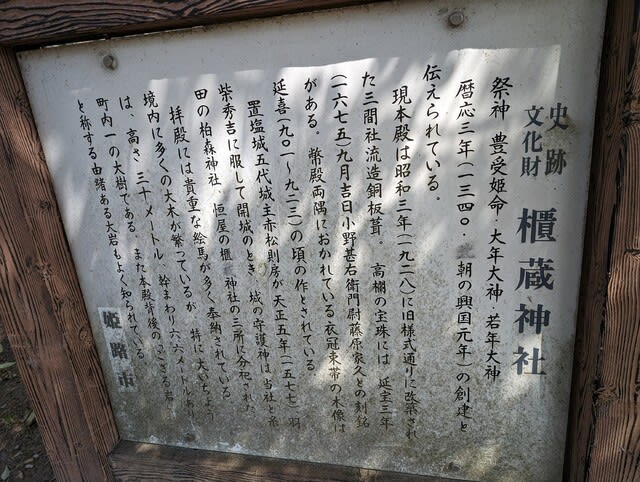 史跡
文化財
櫃蔵神社
祭神 豊受姫命・大年大神・若年大神
暦応三年(一三四〇・ 朝の興国元年)の創建と
伝えられている。
現本殿は昭和三年(一九二八)に旧様式通りに改築され
た三間社流造銅板葺。高欄の宝珠には 延宝三年
(一六七五)九月吉日小野甚右衛門尉藤原家久との刻銘
がある。 幣殿両隅におかれている衣冠束帯の木像は
延喜(九〇一〜九二三)の頃の作とされている。
置塩城五代城主赤松則房が天正五年(一五七七) 羽
柴秀吉に服して開城のとき、城の守護神は当社と糸
田の柏森神社、恒屋の櫃 神社の三所に分祀された
拝殿には貴重な絵馬が多く奉納されている
境内に多くの大木が繁っているが 特に大いちょう
は、高さ 三十メートル 幹まわり六・六メートルあり
町内一の大樹である。また本殿背後の 岩
と称する由緒ある大岩もよく知られている
姫路市